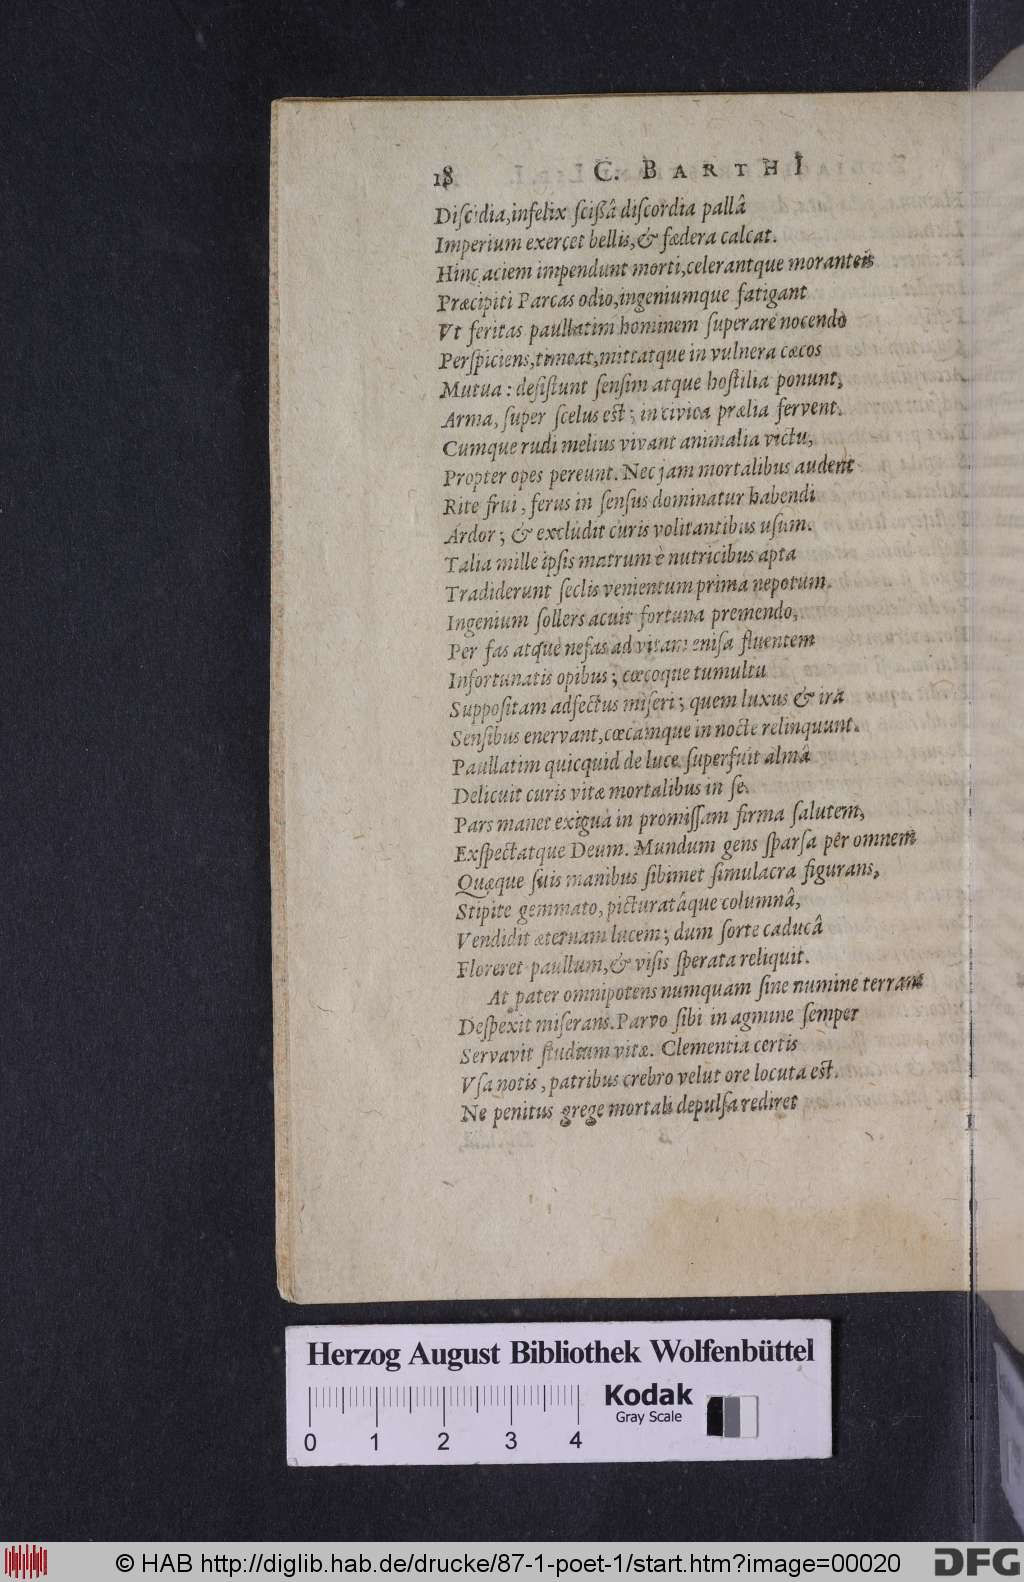 18 C. BARTHI
Discidia, infelix scißâ discordia pallâ
Imperium exerçet bellis, & fœdera calcat.
Hinc aciem impendunt morti, celerantque moranteis
Præcipiti Parcas odio, ingeniumque fatigant
Vt feritas paullatim hominem superare nocendo
Perspiciens, timeat, mittatque in vulnera cæcos
Mutua: desistunt sensim atque hostilia ponunt,
Arma, super scelus est; in civica prælia fervent.
Cumque rudi melius vivant animalia victu,
Propter opes pereunt. Nec jam mortalibus audent
Rite frui, ferus in sensus dominatur habendi
Ardor; & excludit curis volitantibus usum.
Talia mille ipsis matrum è nutricibus apta
Tradiderunt seclis venientum prima nepotum.
Ingenium sollers acuit fortuna premendo,
Per fas atque nefas ad vitam enisa fluentem
Infortunatis opibus; cœcoque tumultu
Suppositam adfectus miseri; quem luxus & ira
Sensibus enervant, cœcamque in nocte relinquunt.
Paullatim quicquid de luce superfuit almâ
Delicuit curis vitæ mortalibus in se.
Pars manet exigua in promissam firma salutem,
Exspectatque Deum. Mundum gens sparsa per omnem
Quæque suis manibus sibimet simulacra figurans,
Stipite gemmato, picturatâque columnâ,
Vendidit æternam lucem; dum sorte caducâ
Floreret paullum, & visis sperata reliquit.
At pater omnipotens numquam sine numine terram
Despexit miserans. Parvo sibi in agmine semper
Servavit studium vitæ. Clementia certis
Vsa notis, patribus crebro velut ore locuta est.
Ne penitus grege mortali depulsa rediret
Herzog August Bibliothek Wolfenbüttel
Kodak
Gray Scale
0 1 2 3 4
© HAB http://diglib.hab.de/drucke/87-1-poet-1/start.htm?image=00020
DFG